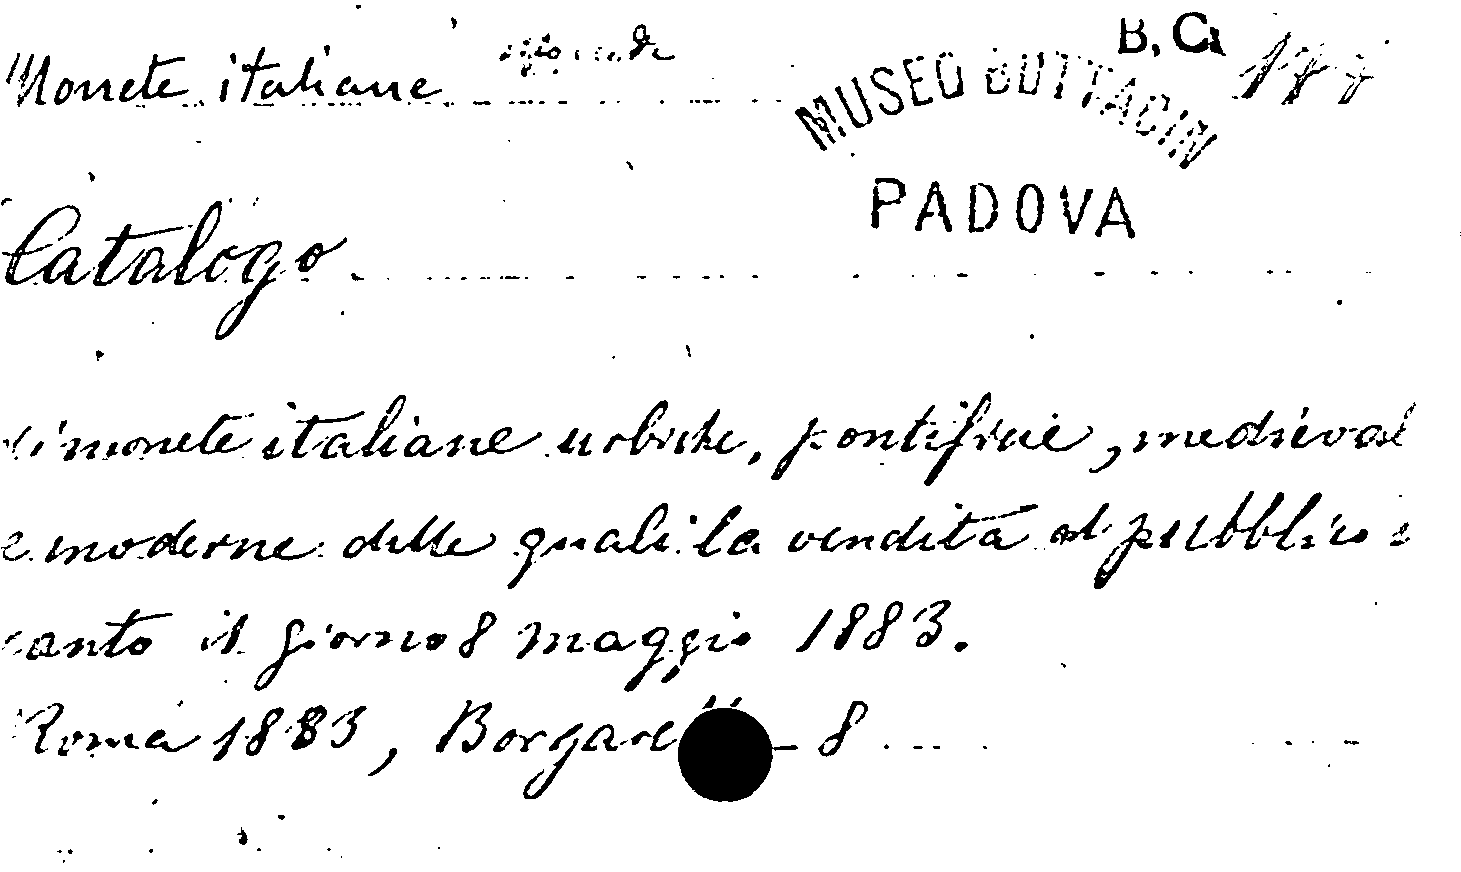 Monete italiane
B. C.
MUSEO BOTTACIN
PADOVA
Catalogo
di monete italiane urbiche, pontificie, medieval
e moderne delle quali la vendita al pubblico i
canto il giorno 8 maggio 1883.
Roma 1883, Borgarelli - 8